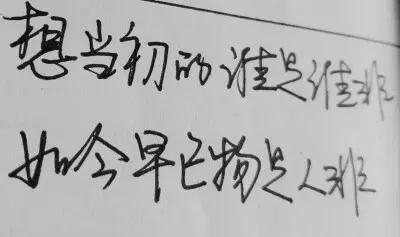 想当初的谁是谁非
如今早已物是人非